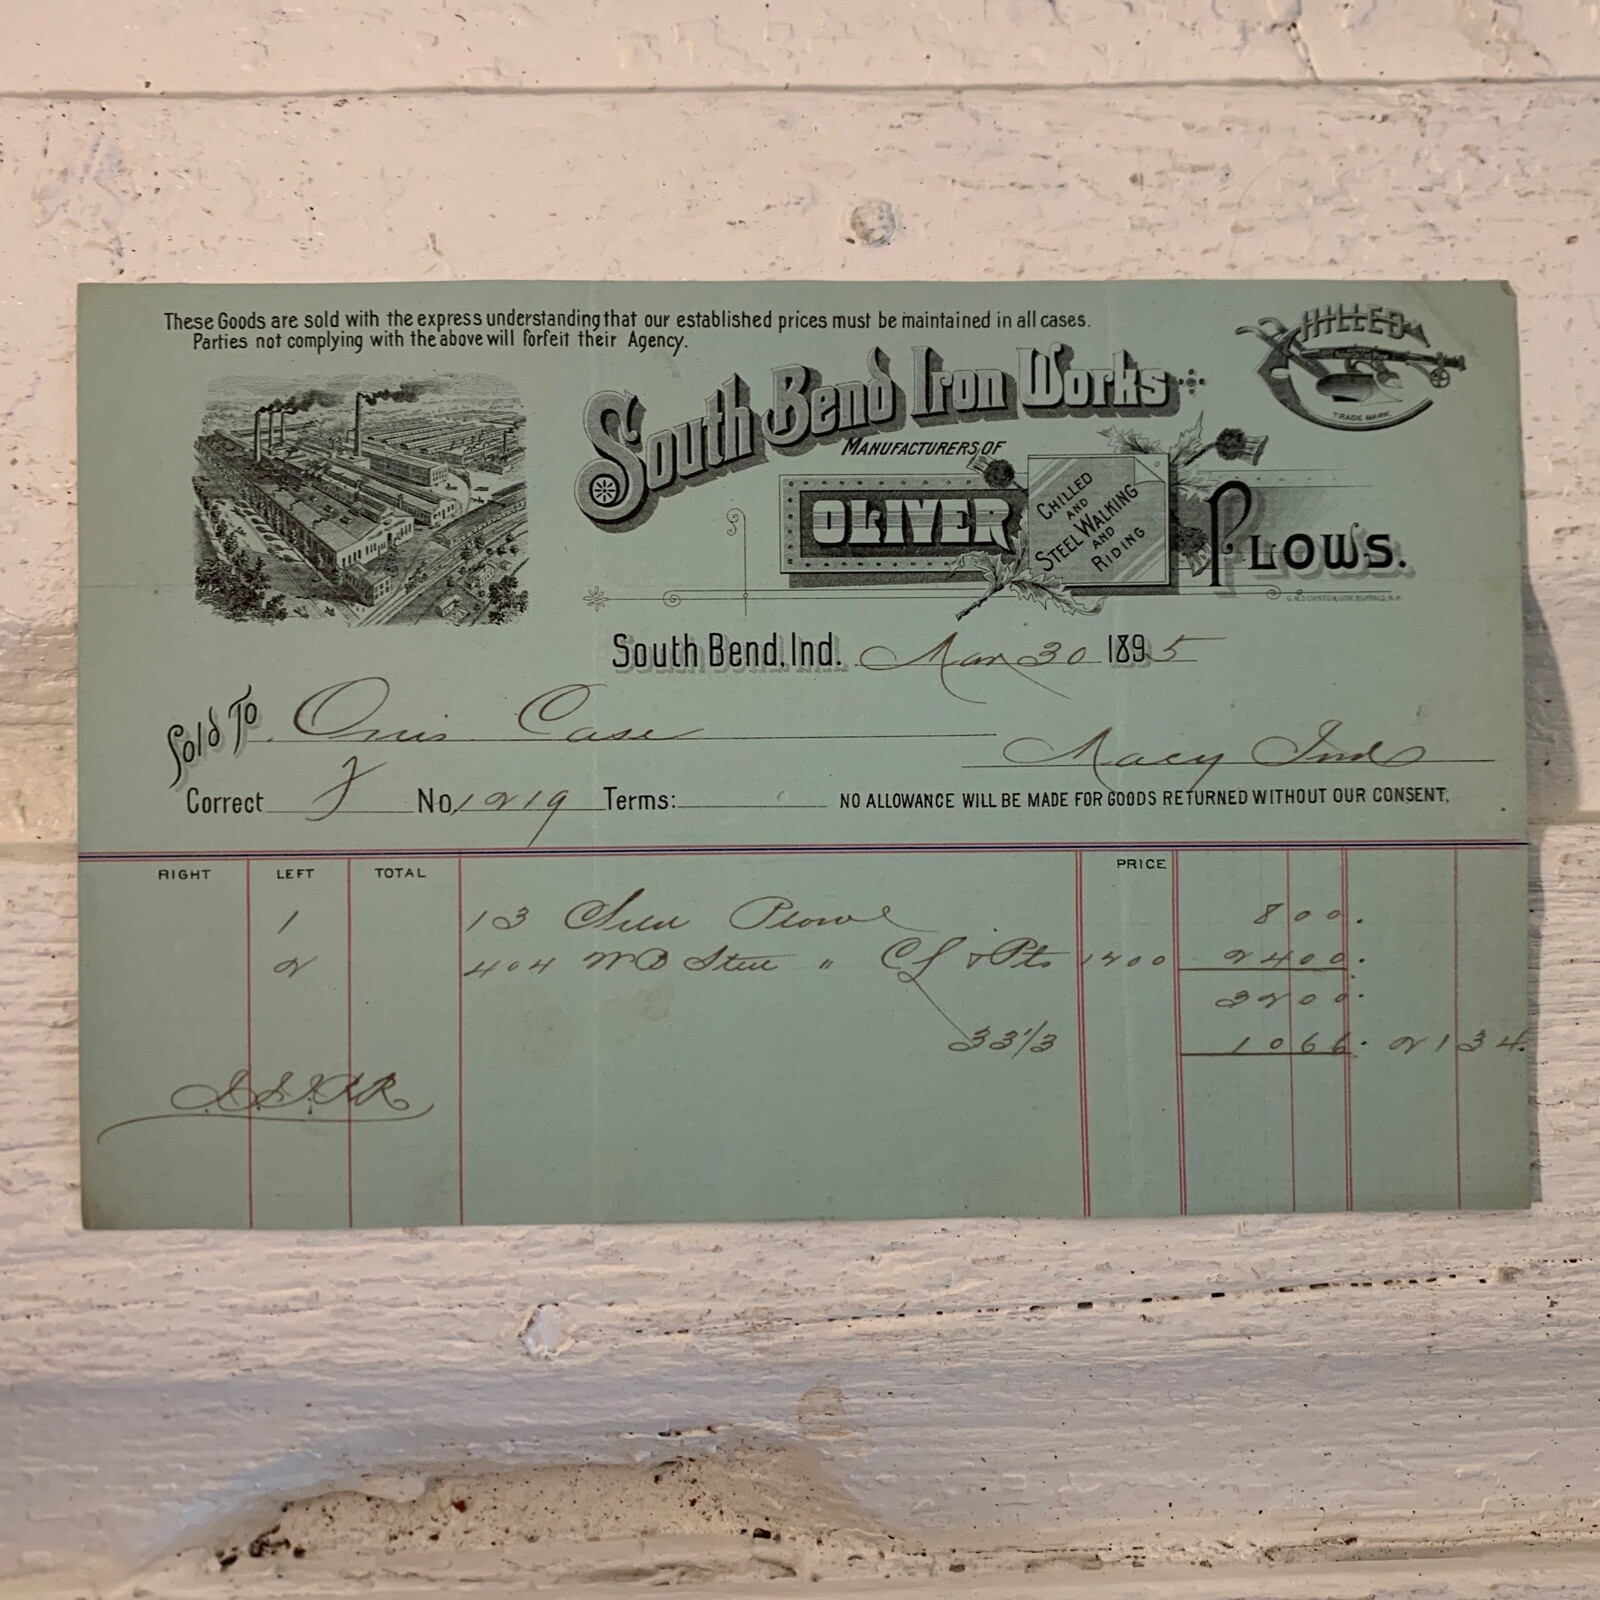 These Goods are sold with the express understanding that our established prices must be maintained in all cases.
Parties not complying with the above will forfeit their Agency.
CHILLED
TRADE MARK.
South Bend Iron Works
MANUFACTURERS OF
OLIVER
CHILLED
AND
STEEL WALKING
AND
RIDING
PLOWS.
South Bend, Ind. Mar 30 1895
Sold To Orris Case
Macy Ind
Correct No. 1219 Terms: NO ALLOWANCE WILL BE MADE FOR GOODS RETURNED WITHOUT OUR CONSENT.
RIGHT LEFT TOTAL PRICE
1 13 Plow 800.
2 404 Steel " & Pts 1200 2400.
3200.
33 1/3 1066. 2134.